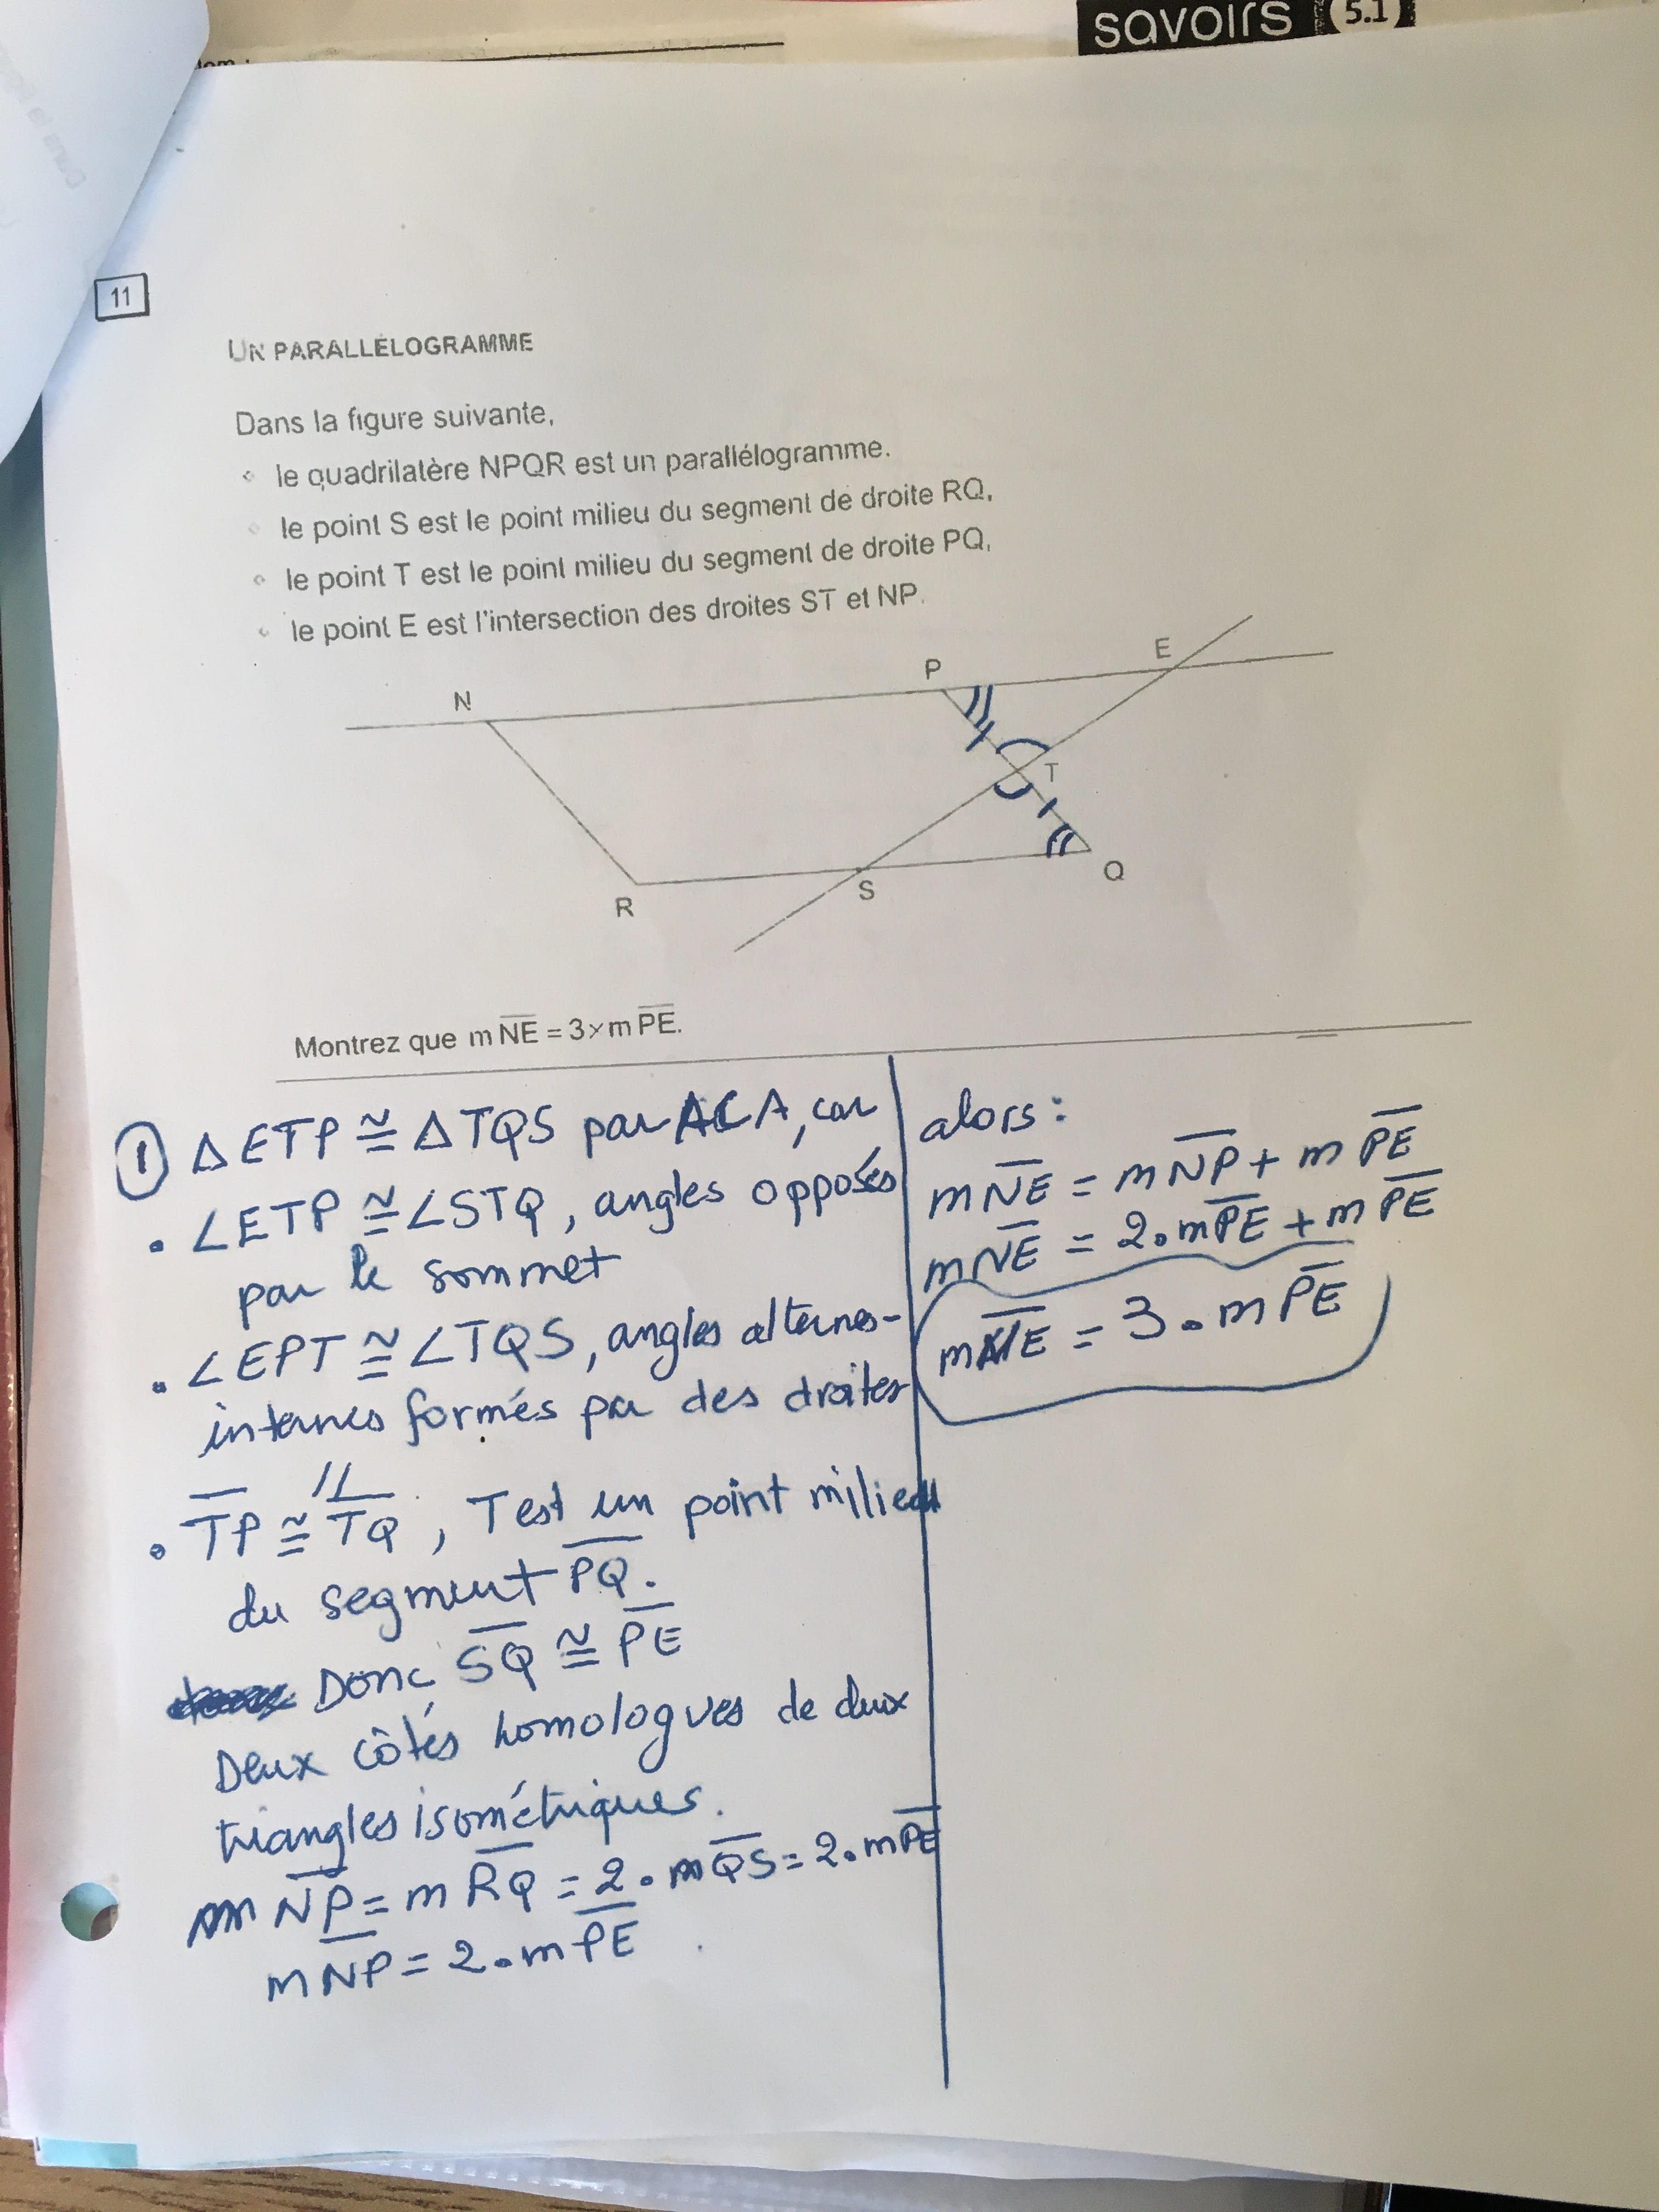 savoirs 5.1
11
UN PARALLÉLOGRAMME
Dans la figure suivante,
le quadrilatère NPQR est un parallélogramme.
le point S est le point milieu du segment de droite RQ,
le point T est le point milieu du segment de droite PQ,
le point E est l'intersection des droites ST et NP.
E
P
N
T
Q
S
R
Montrez que m N̅E̅ = 3×m P̅E̅.
① Δ ETP ≅ Δ TQS par ACA, car
• ∠ETP ≅ ∠STQ, angles opposés
par le sommet
• ∠EPT ≅ ∠TQS, angles alternes-
internes formés par des droites
//
• T̅P̅ ≅ T̅Q̅, T est un point milieu
du segment P̅Q̅.
Donc S̅Q̅ ≅ P̅E̅
Deux côtés homologues de deux
triangles isométriques.
m N̅P̅ = m R̅Q̅ = 2•m Q̅S̅ = 2•m P̅E̅
m N̅P̅ = 2•m P̅E̅
alors :
m N̅E̅ = m N̅P̅ + m P̅E̅
m N̅E̅ = 2•m P̅E̅ + m P̅E̅
m N̅E̅ = 3•m P̅E̅